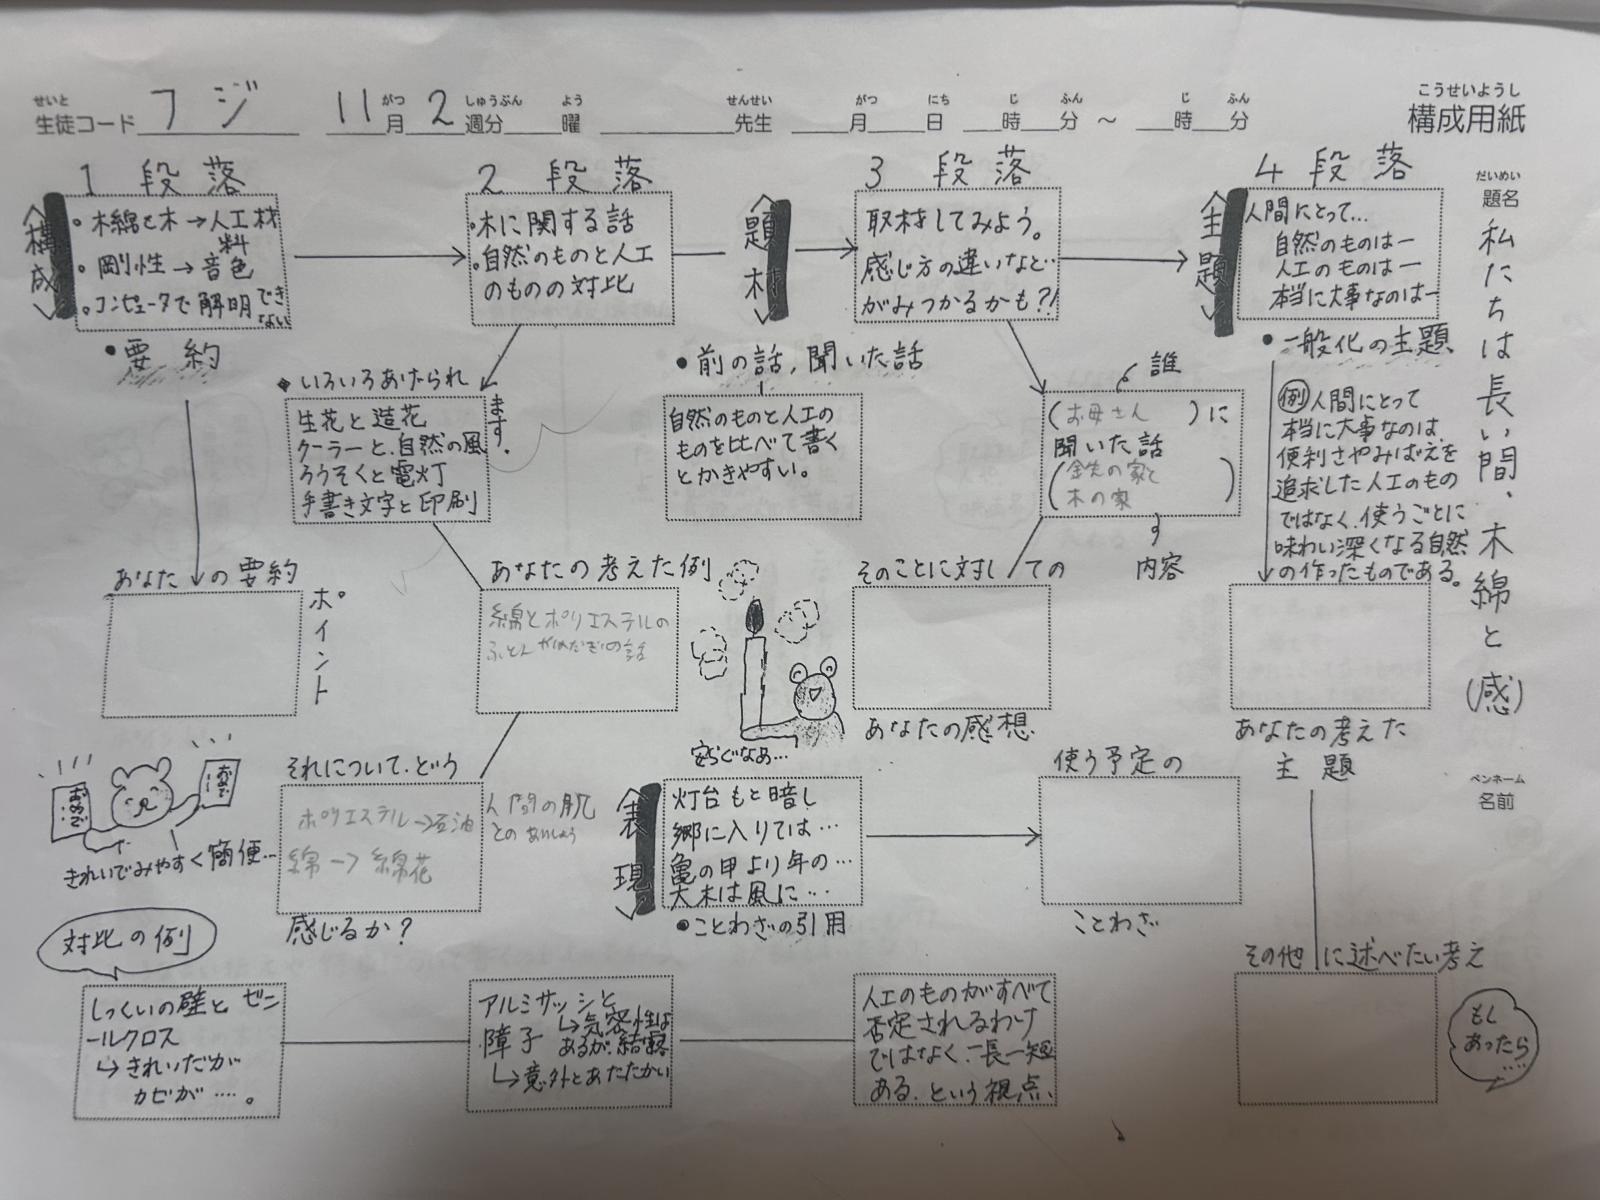 こうせいようし
構成用紙
せいと
生徒コード フジ
がつ しゅうぶん よう
11月2週分 曜
せんせい
先生
がつ にち じ ふん じ ふん
月 日 時 分 ～ 時 分
だいめい
題名
私たちは長い間、木綿と(感)
ペンネーム
名前
1段落
〈構成〉
・木綿と木→人工材
料
・剛性→音色
・コンピュータで解明でき
ない
・要約
あなたの要約
ポイント
きれいでみやすく簡便…
2段落
・木に関する話
・自然のものと人工
のものの対比
・いろいろあげられ
ます。
生花と造花
クーラーと、自然の風
ろうそくと電灯
手書き文字と印刷
あなたの考えた例
綿とポリエステルの
それについて、どう
ポリエステル→石油
綿→綿花
人間の肌
感じるか？
〈題材〉
・前の話,聞いた話
自然のものと人工の
ものを比べて書く
とかきやすい。
安らぐなあ…
3段落
取材してみよう。
感じ方の違いなど…
がみつかるかも？！
誰
(お母さん )に
聞いた話
木の家
内容
そのことに対しての
あなたの感想
〈主題〉
4段落
人間にとって…
自然のものは―
人工のものは―
本当に大事なのは―
・一般化の主題
例 人間にとって
本当に大事なのは、
便利さやみばえを
追求した人工のもの
ではなく、使うごとに
味わい深くなる自然
の作ったものである。
あなたの考えた
主題
その他に述べたい考え
もし
あったら
……
〈表現〉
灯台もと暗し
郷に入りては…
亀の甲より年の…
大木は風に…
・ことわざの引用
使う予定の
ことわざ
対比の例
しっくいの壁とビニ
ールクロス
↳きれいだが
カビが……。
アルミサッシと
障子
↳気密性は
あるが、結露
↳意外とあたたかい
人工のものがすべて
否定されるわけ
ではなく、一長一短
ある、という視点、